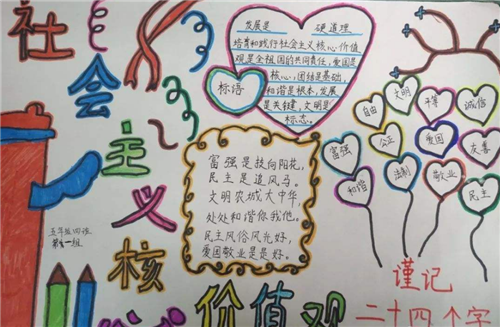 社会主义核心价值观
发展是 硬道理
培育和践行社会主义核心价值
观是全祖国的共同责任,爱国是
核心,团结是基础,
和谐是根本,发展
是关键,文明是
标志。
标语
富强是扶向阳花,
民主是追风马。
文明农城大中华,
处处和谐你我他。
民主风俗风光好,
爱国敬业是最好。
五年级四班
第1组
自由
文明
平等
诚信
富强
公正
爱国
友善
和谐
法制
敬业
民主
谨记
二十四个字